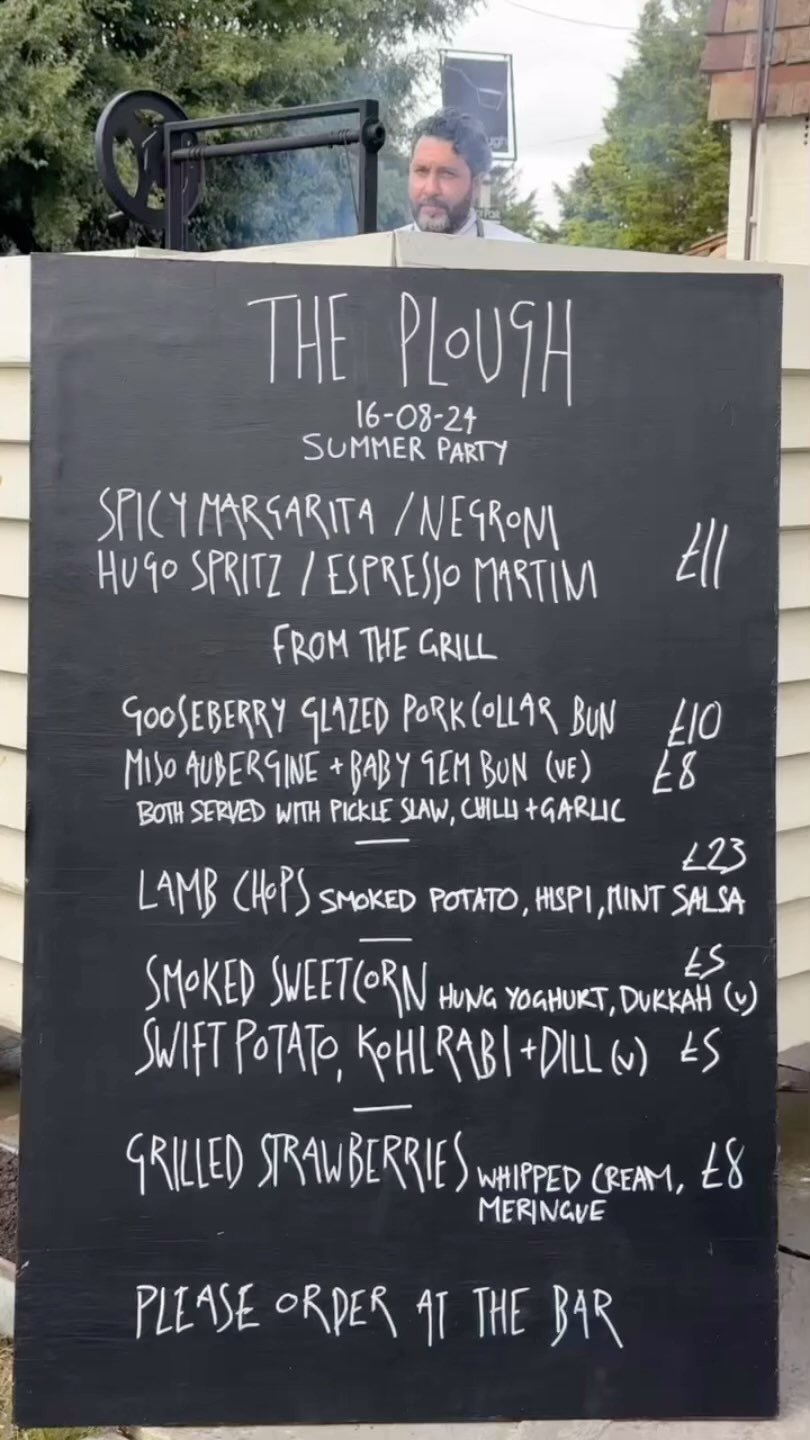 THE PLOUGH
16-08-24
SUMMER PARTY
SPICY MARGARITA / NEGRONI
HUGO SPRITZ / ESPRESSO MARTINI £11
FROM THE GRILL
GOOSEBERRY GLAZED PORK COLLAR BUN £10
MISO AUBERGINE + BABY GEM BUN (VE) £8
BOTH SERVED WITH PICKLE SLAW, CHILLI + GARLIC
£23
LAMB CHOPS SMOKED POTATO, HISPI, MINT SALSA
£5
SMOKED SWEETCORN HUNG YOGHURT, DUKKAH (V)
SWIFT POTATO, KOHLRABI + DILL (V) £5
GRILLED STRAWBERRIES WHIPPED CREAM, £8
MERINGUE
PLEASE ORDER AT THE BAR